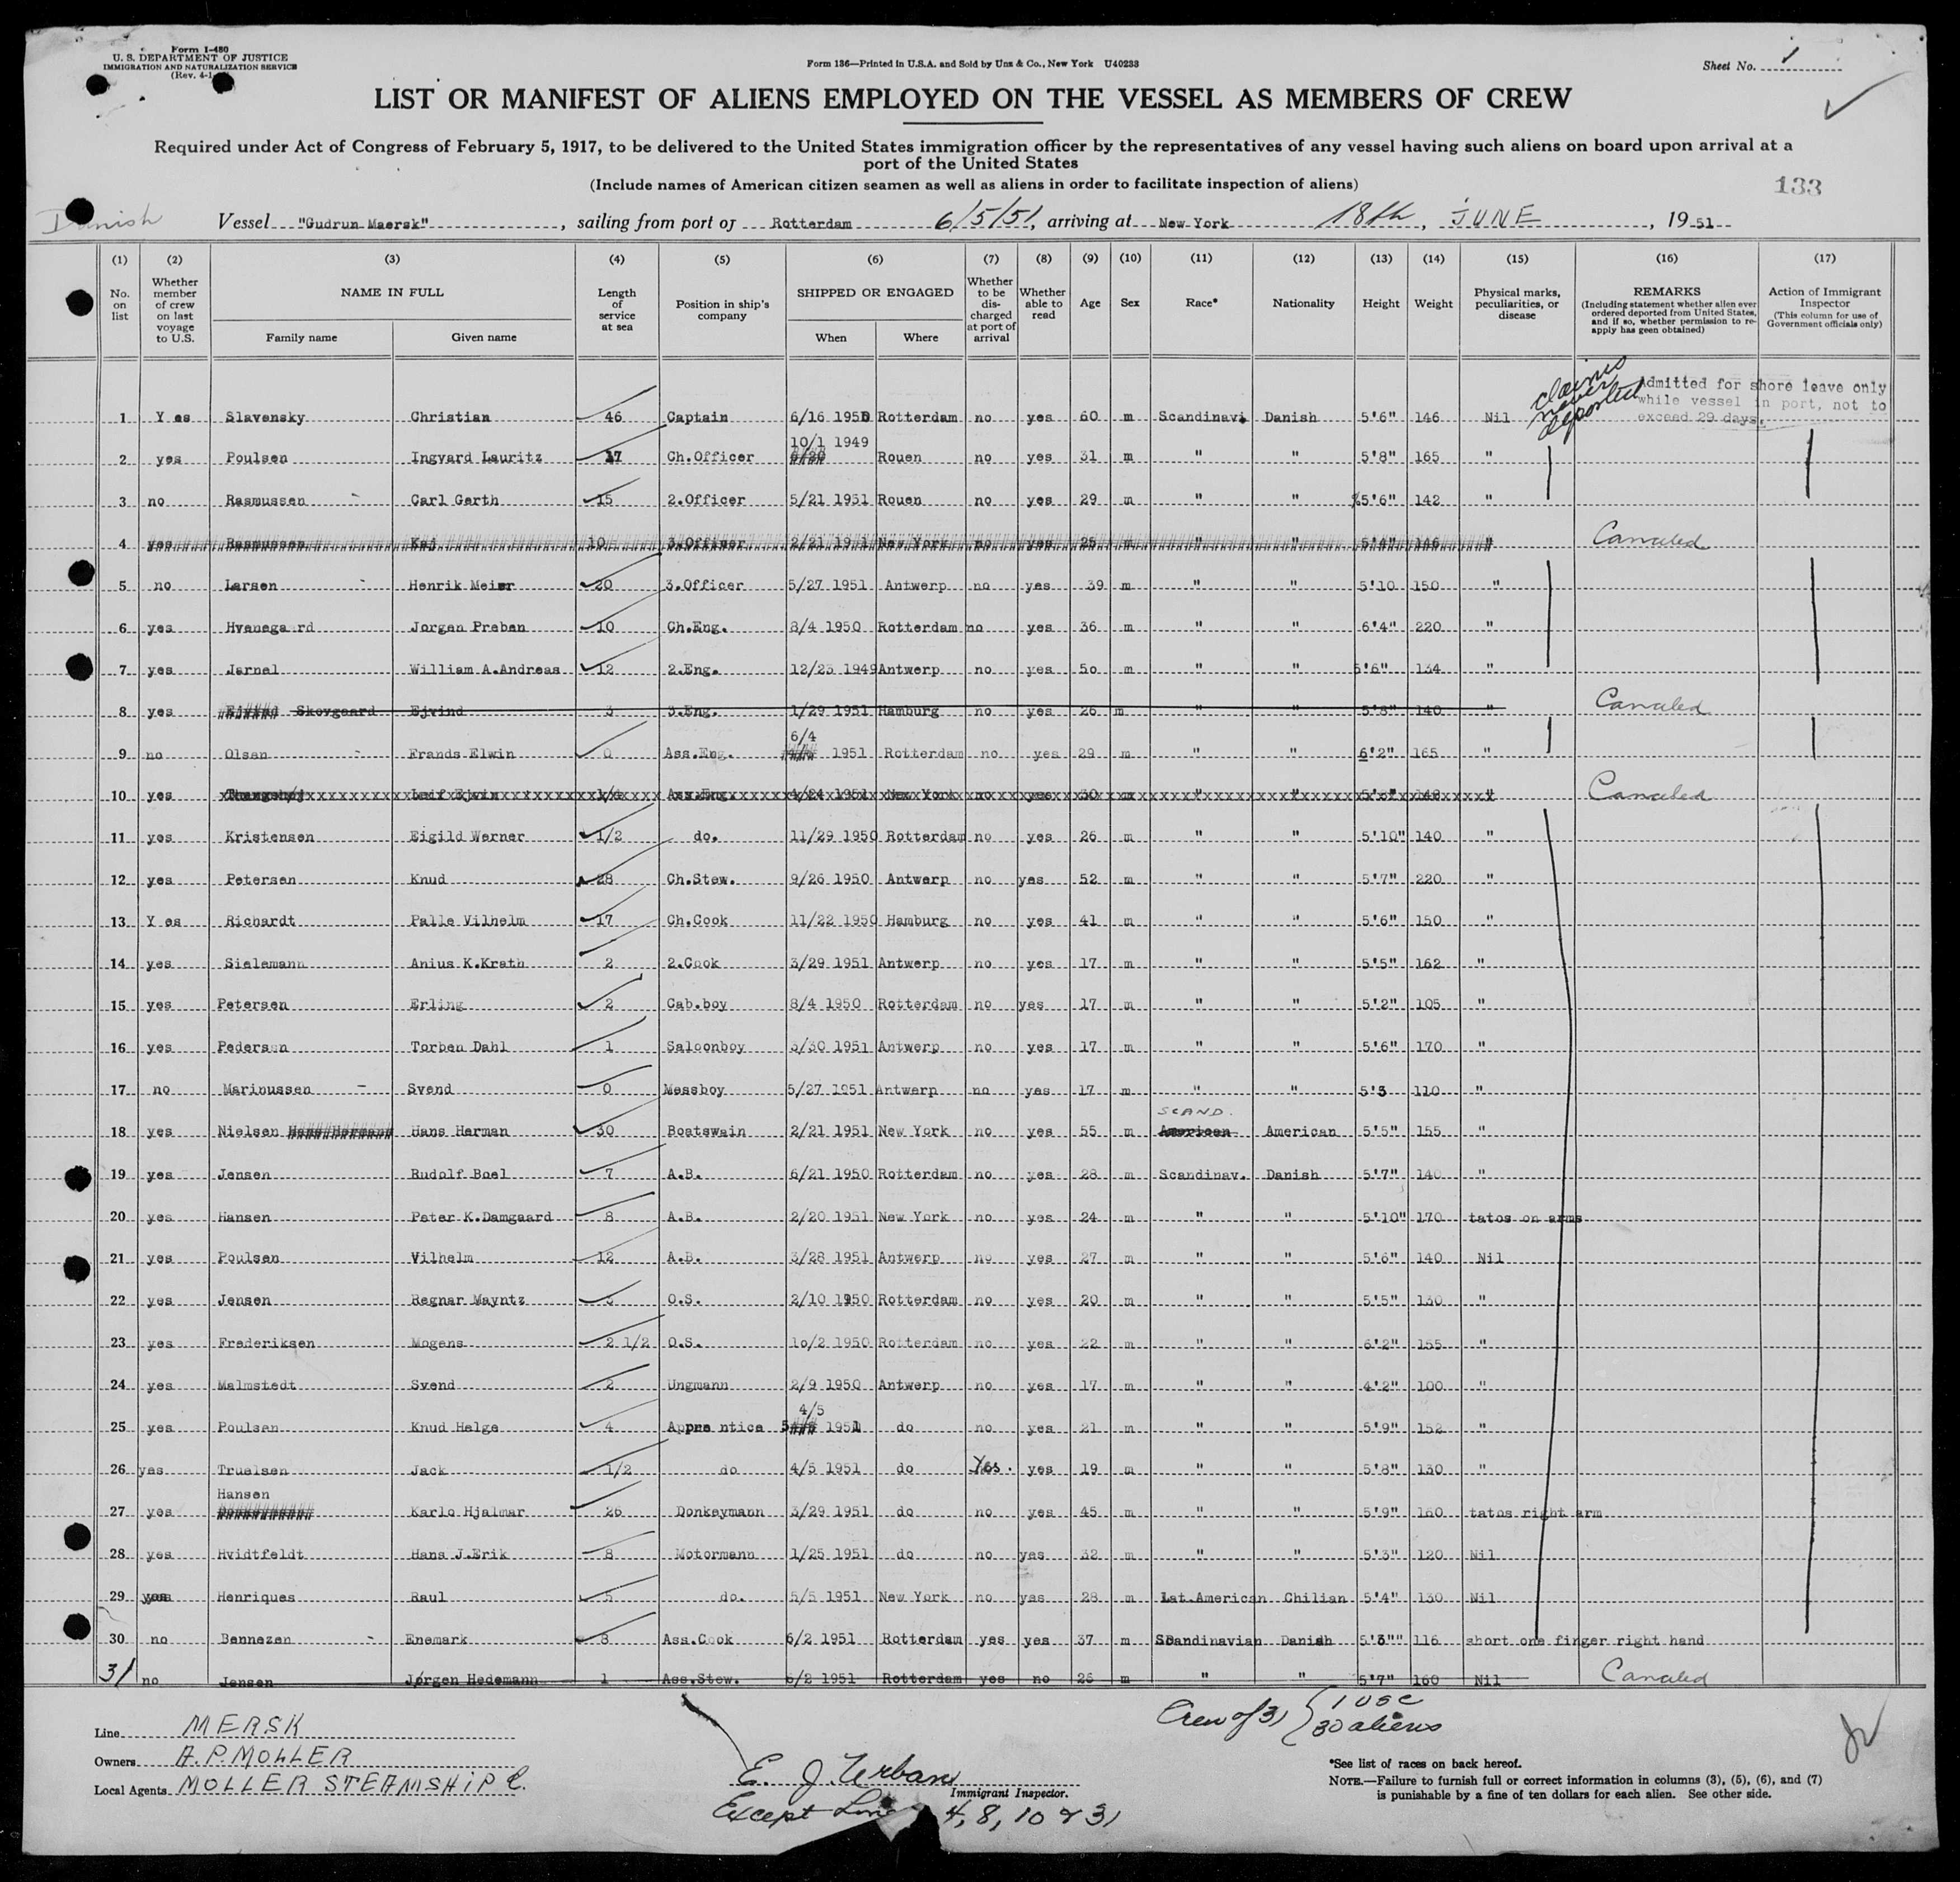 Form I-480
U. S. DEPARTMENT OF JUSTICE
IMMIGRATION AND NATURALIZATION SERVICE
(Rev. 4-1
Form 136—Printed in U.S.A. and Sold by Unz & Co., New York U40233
Sheet No. 1
LIST OR MANIFEST OF ALIENS EMPLOYED ON THE VESSEL AS MEMBERS OF CREW
Required under Act of Congress of February 5, 1917, to be delivered to the United States immigration officer by the representatives of any vessel having such aliens on board upon arrival at a
port of the United States
(Include names of American citizen seamen as well as aliens in order to facilitate inspection of aliens)
133
Danish Vessel "Gudrun Maersk", sailing from port of Rotterdam 6/5/51, arriving at New York 18th, JUNE, 1951
(1) (2) (3) (4) (5) (6) (7) (8) (9) (10) (11) (12) (13) (14) (15) (16) (17)
No. on list
Whether member of crew on last voyage to U.S.
NAME IN FULL
Family name Given name
Length of service at sea
Position in ship's company
SHIPPED OR ENGAGED
When Where
Whether to be discharged at port of arrival
Whether able to read
Age
Sex
Race*
Nationality
Height
Weight
Physical marks, peculiarities, or disease
REMARKS
(Including statement whether alien ever ordered deported from United States, and if so, whether permission to re-apply has geen obtained)
Action of Immigrant Inspector
(This column for use of Government officials only)
claims never deported
Admitted for shore leave only
while vessel in port, not to
exceed 29 days.
1 Y es Slavensky Christian 46 Captain 6/16 1950 Rotterdam no yes 60 m Scandinavi. Danish 5'6" 146 Nil
2 yes Poulsen Ingvard Lauritz 17 Ch.Officer 10/1 1949 Rouen no yes 31 m " " 5'8" 165 "
3 no Rasmussen - Carl Gerth 15 2.Officer 5/21 1951 Rouen no yes 29 m " " 5'6" 142 "
4 yes Rasmussen Kaj 10 3.Officer 2/21 19 1 New York no yes 25 m " " 5'4" 146 " Canceled
5 no Larsen - Henrik Meier 20 3.Officer 5/27 1951 Antwerp no yes 39 m " " 5'10 150 "
6 yes Hvenega rd Jorgen Preben 10 Ch.Eng. 8/4 1950 Rotterdam no yes 36 m " " 6'4" 220 "
7 yes Jarnel William A.Andreas 12 2.Eng. 12/23 1949 Antwerp no yes 5o m " " 5'6" 134 "
8 yes Ejvind Skovgaard Ejvind 3 3.Eng. 1/29 1951 Hamburg no yes 26 m " " 5'8" 140 " Canceled
9 no Olsen - Frands Elwin 0 Ass.Eng. 6/4 1951 Rotterdam no yes 29 m " " 6'2" 165 "
10 yes Leif Ejvin Ass.Eng. 4/24 1951 New York no yes 30 m " " " Canceled
11 yes Kristensen Eigild Werner 1/2 do. 11/29 1950 Rotterdam no yes 26 m " " 5'10" 140 "
12 yes Petersen Knud 28 Ch.Stew. 9/26 1950 Antwerp no yes 52 m " " 5'7" 220 "
13 Y es Richardt Palle Vilhelm 17 Ch.Cook 11/22 1950 Hamburg no yes 41 m " " 5'6" 150 "
14 yes Sielemann Anius K.Krath 2 2.Cook 3/29 1951 Antwerp no yes 17 m " " 5'5" 162 "
15 yes Petersen Erling 2 Cab.boy 8/4 1950 Rotterdam no yes 17 m " " 5'2" 105 "
16 yes Pedersen Torben Dahl 1 Saloonboy 3/30 1951 Antwerp no yes 17 m " " 5'6" 170 "
17 no Marinussen - Svend 0 Messboy 5/27 1951 Antwerp no yes 17 m " " 5'3 110 "
SCAND.
18 yes Nielsen Hans Hermann Hans Herman 30 Boatswain 2/21 1951 New York no yes 55 m American American 5'5" 155 "
19 yes Jensen Rudolf Boel 7 A.B. 6/21 1950 Rotterdam no yes 28 m Scandinav. Danish 5'7" 140 "
20 yes Hansen Peter K.Damgaard 8 A.B. 2/20 1951 New York no yes 24 m " " 5'10" 170 tatos on arms
21 yes Poulsen Vilhelm 12 A.B. 3/28 1951 Antwerp no yes 27 m " " 5'6" 140 Nil
22 yes Jensen Regnar Mayntz O.S. 2/10 1950 Rotterdam no yes 20 m " " 5'5" 130 "
23 yes Frederiksen Mogens 2 1/2 O.S. 1o/2 1950 Rotterdam no yes 22 m " " 6'2" 155 "
24 yes Malmstedt Svend 2 Ungmann 2/9 1950 Antwerp no yes 17 m " " 4'2" 100 "
25 yes Poulsen Knud Helge 4 Appre ntice 4/5 1951 do no yes 21 m " " 5'9" 152 "
26 yes Truelsen Jack 1/2 do 4/5 1951 do Yes. yes 19 m " " 5'8" 130 "
27 yes Hansen Karlo Hjalmar 26 Donkeymann 3/29 1951 do no yes 45 m " " 5'9" 160 tatos right arm
28 yes Hvidtfeldt Hans J.Erik 8 Motormann 1/25 1951 do no yes 32 m " " 5'3" 120 Nil
29 yes Henriques Raul 5 do. 5/5 1951 New York no yes 28 m Lat.American Chilian 5'4" 130 Nil
30 no Bennezen - Enemark 8 Ass.Cook 6/2 1951 Rotterdam yes yes 37 m Scandinavian Danish 5'3"" 116 short one finger right hand
31 no Jensen Jørgen Hedemann 1 Ass.Stew. 6/2 1951 Rotterdam yes no 26 m " " 5'7" 160 Nil Canceled
Line MERSK
Owners A.P. MOLLER
Local Agents MOLLER STEAMSHIP C.
Crew of 31 { 1 USC
30 aliens
E. J. Urban
Immigrant Inspector.
Except Line 4, 8, 10 & 31
*See list of races on back hereof.
NOTE.—Failure to furnish full or correct information in columns (3), (5), (6), and (7)
is punishable by a fine of ten dollars for each alien. See other side.